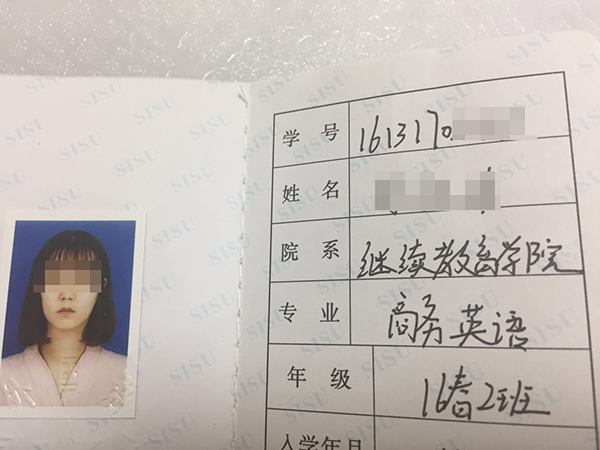 学号 1613170
姓名
院系 继续教育学院
专业 商务英语
年级 16春2班
入学年月
SISU